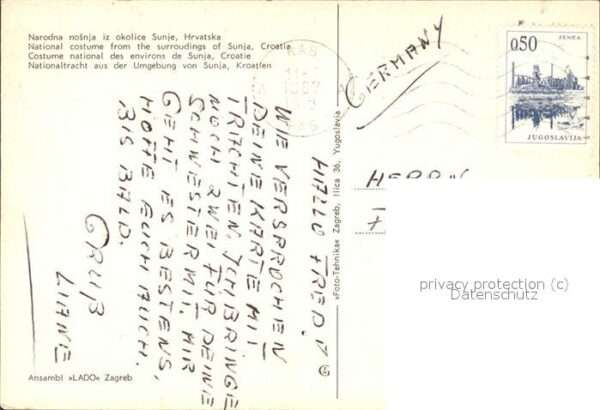 Narodna nošnja iz okolice Sunje, Hrvatska
National costume from the surroudings of Sunja, Croatia
Costume national des environs de Sunja, Croatie
Nationaltracht aus der Umgebung von Sunja, Kroatien
HALLO FRED!
WIE VERSPROCHEN
DEINE KARTE MIT
TRACHTEN. ICH BRINGE
NOCH ZWEI FÜR DEINE
SCHWESTER MIT. MIR
GEHT ES BESTENS,
HOFFE EUCH AUCH.
BIS BALD.
GRUß
LIANE
Ansambl »LADO« Zagreb
»Foto-Tehnika« Zagreb, Ilica 36, Yugoslavia
RAB
1967
GERMANY
JENKA
0,50
JUGOSLAVIJA
HERRN
F
privacy protection (c)
Datenschutz